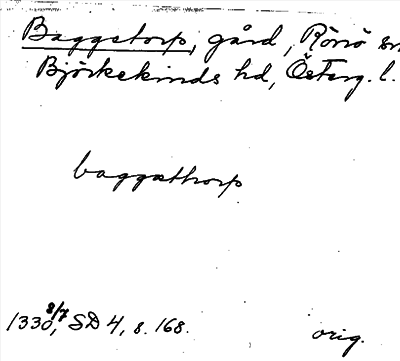 Baggetorp, gård, Rönö sn
Björkekinds hd, Österg. l.
baggætthorp
1330 8/7, SD 4, s. 168. orig.